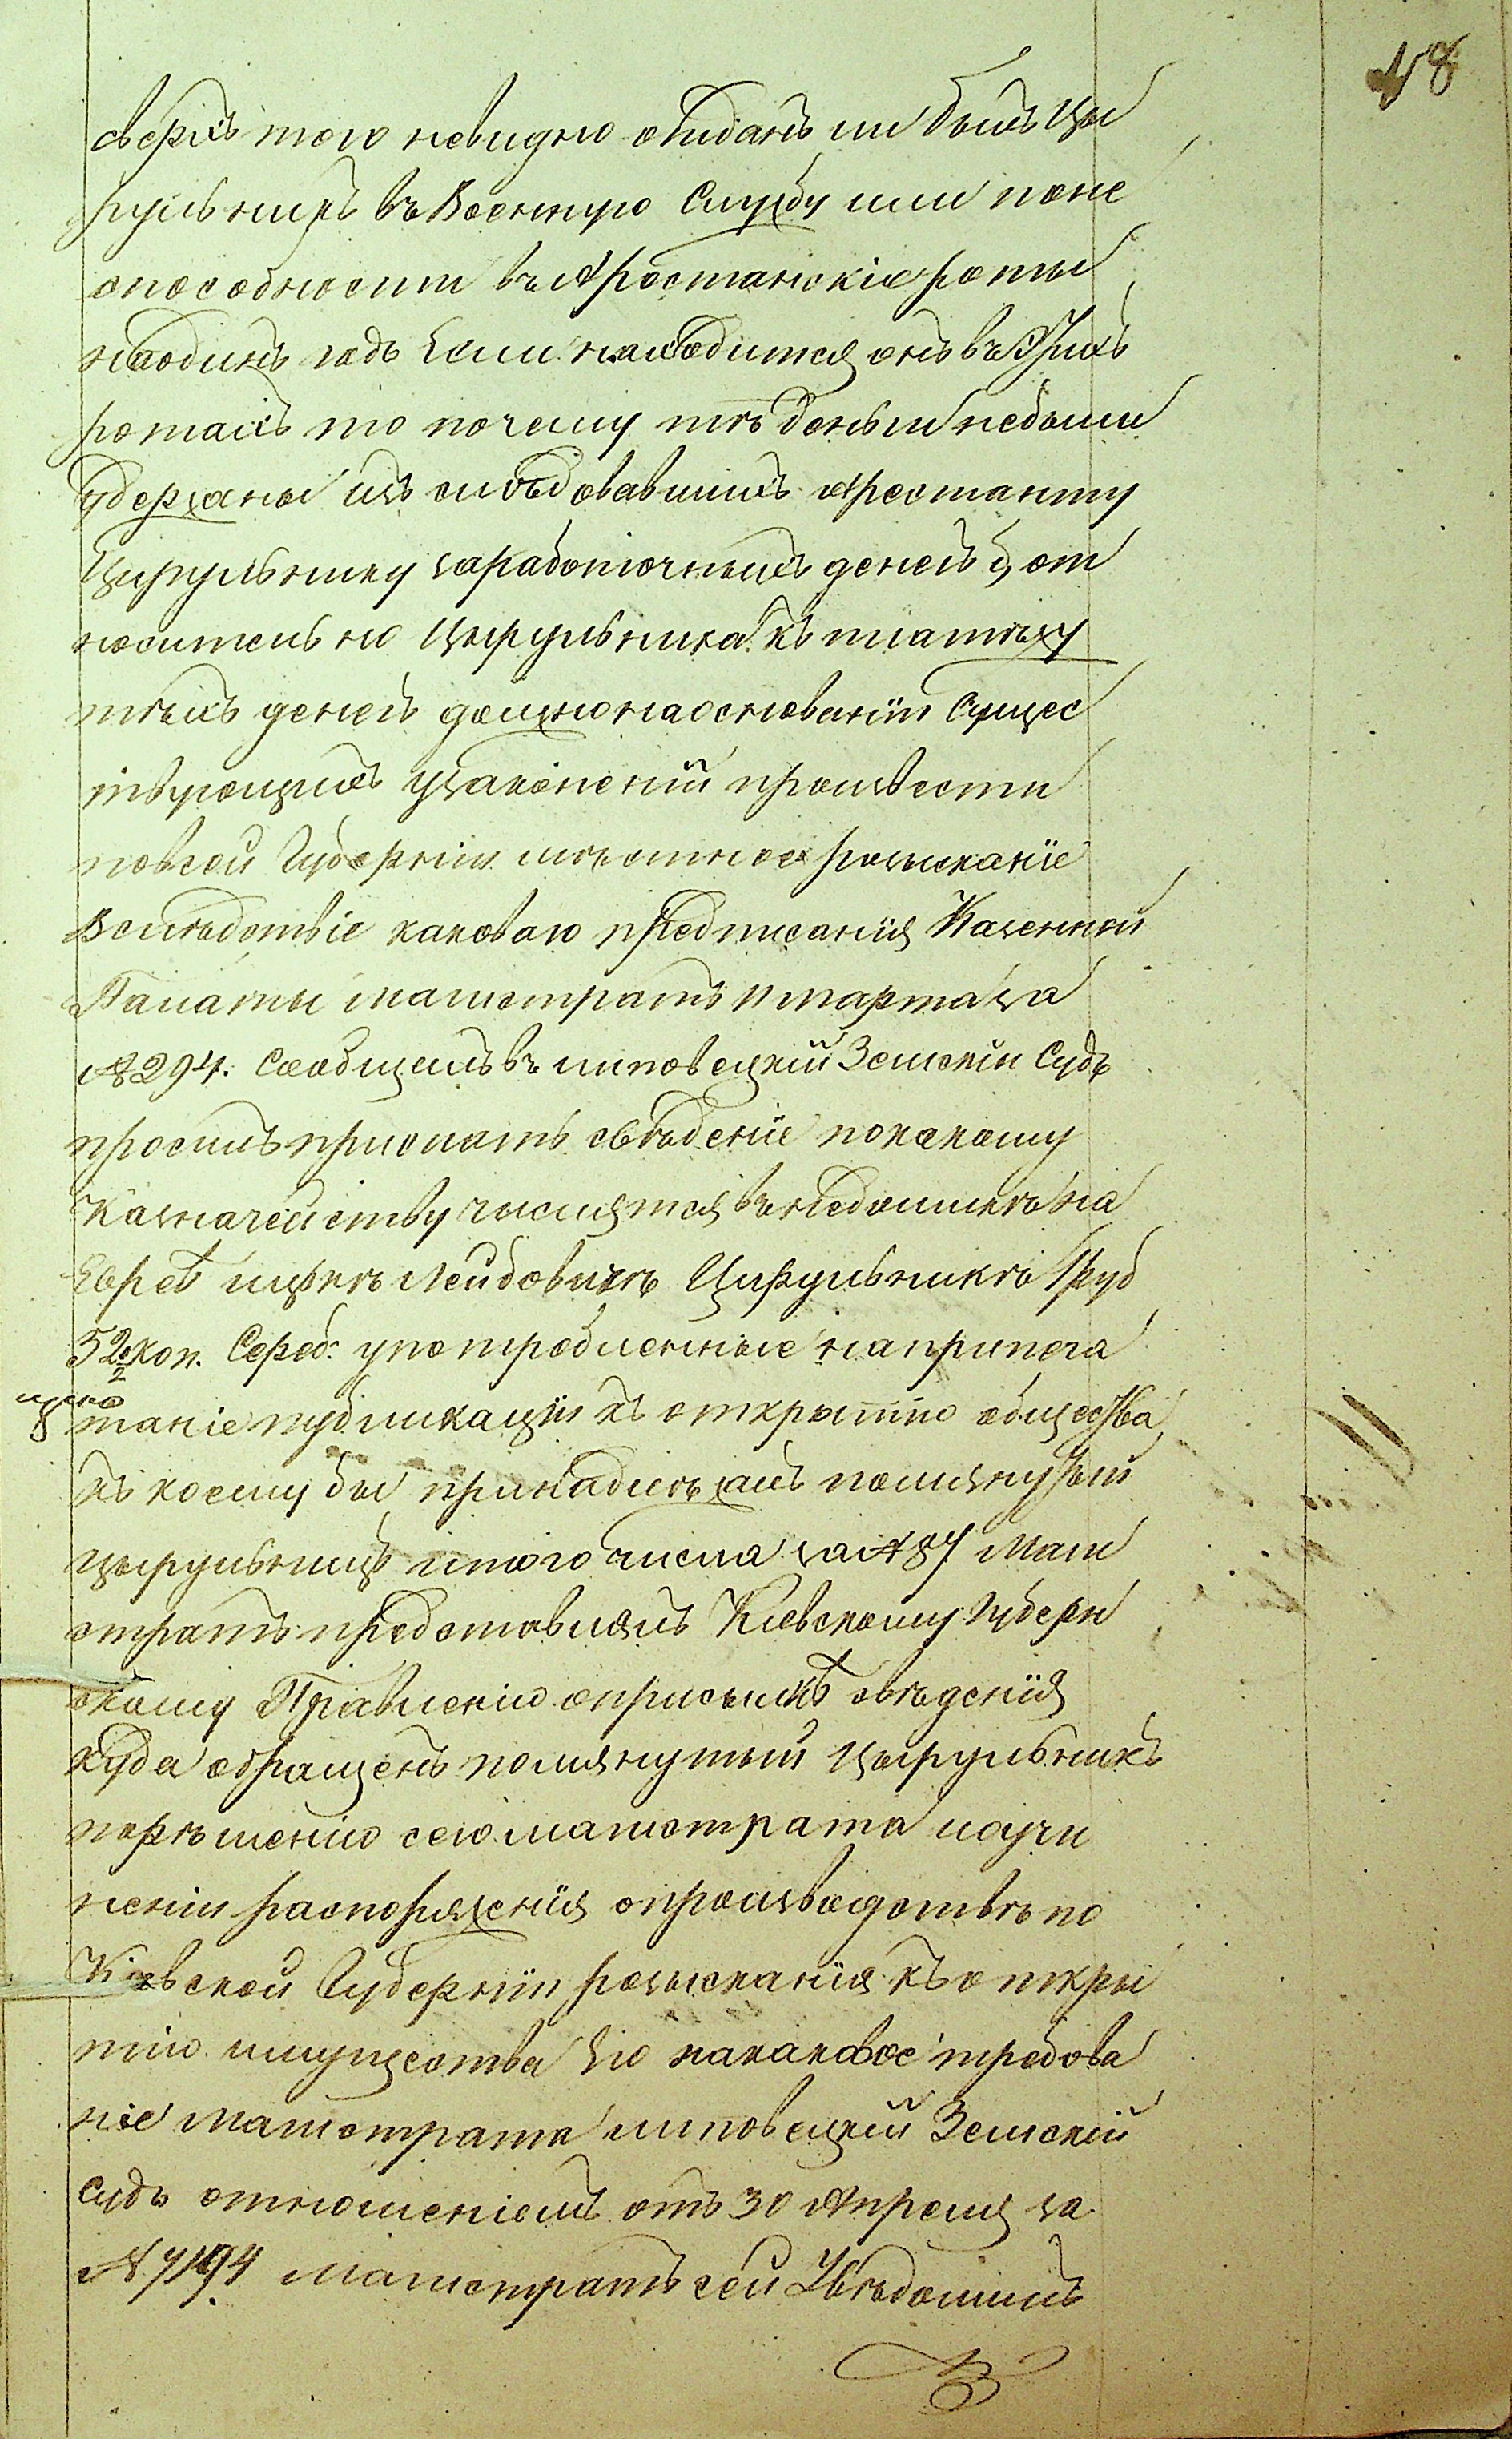 48
сверхъ того невидно отданъ ли былъ Цы
рульникъ въ Военную Службу или поне
способности въ Арестанскіе роты
наодинъ годъ Если находится онъ въ Этихъ
ротахъ то почему тѣ деньги небыли
удержаны изъ слѣдовавшихъ Арестанту
Цирульнику заработочныхъ денегъ, от
носительно Цырульника къ платежу
тѣхъ денегъ должно наоснованіи Сущес
твующихъ узаконеній произвести
повсей Губерніи мѣстное розысканіе
Вслѣдствіе каковаго предписанія Казенной
Палаты Магистратъ 11 марта за
№ 294. Сообщилъ въ липовецкій Земскій Судъ
просилъ прислать свѣденіе покакому
Казначейству числятся въ недоимкѣ на
Евреѣ Ицкѣ Лейбовичѣ Цирульникѣ 1 руб
52 1/2 коп. Сереб: употребленные на припеча
таніе публикаціи къ открытію общества
къ коему бы принадлежалъ помянутый
цырульникъ итого числа за № 87 Маги
стратъ представлялъ Кіевскому Губерн
скому Правленію оприсылкѣ свѣденія
куда обращенъ помянутый Цырульникъ
порѣшенію сего магистрата иоучи
неніи распоряженія опроизводствѣ по
Кіевской Губерніи розысканія къ откры
тію имущества Его накаковое требова
ніе магистрата липовецкій Земскій
судъ отношеніемъ отъ 30 Апреля за
№ 7194 Магистратъ сей Увѣдомилъ